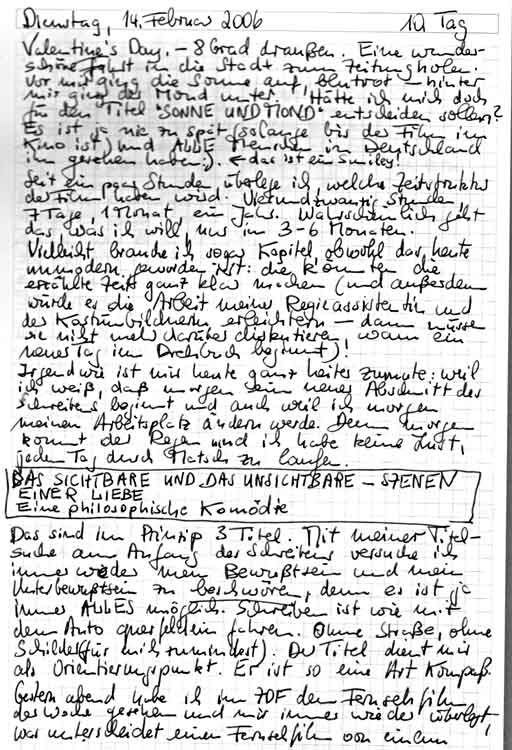 Dienstag, 14. Februar 2006 10. Tag
Valentine's Day. – 8 Grad draußen. Eine wunder-
schöne Fahrt in die Stadt zum Zeitungholen.
Vor mir ging die Sonne auf, blutrot – hinter
mir ging der Mond unter. Hätte ich mich doch
für den Titel "SONNE UND MOND" entscheiden sollen?
Es ist ja nie zu spät (solange bis der Film im
Kino ist) und ALLE Menschen in Deutschland
ihn gesehen haben :). ← das ist ein Smiley!
Seit ein paar Stunden überlege ich, welche Zeitstruktur
der Film haben wird. Vierundzwanzig Stunden,
7 Tage, 1 Monat, ein Jahr. Wahrscheinlich geht
das was ich will, nur in 3-6 Monaten.
Vielleicht brauche ich sogar Kapitel, obwohl das heute
unmodern geworden ist: die könnten die
erzählte Zeit ganz klar machen (und außerdem
würde es die Arbeit meiner Regieassistentin und
der Kostümbildnerin erleichtern – dann müssen
sie nicht mehr darüber diskutieren, wann ein
neuer Tag im Drehbuch beginnt)!
Irgendwie ist mir heute ganz heiter zumute: weil
ich weiß, daß morgen ein neuer Abschnitt des
Schreibens beginnt und auch weil ich morgen
meinen Arbeitsplatz ändern werde. Denn morgen
kommt der Regen und ich habe keine Lust,
jeden Tag durch Matsch zu laufen.
DAS SICHTBARE UND DAS UNSICHTBARE – SZENEN
EINER LIEBE
Eine philosophische Komödie
Das sind im Prinzip 3 Titel. Mit meiner Titel-
suche am Anfang des Schreibens versuche ich
immer wieder mein Bewußtsein und mein
Unterbewußtsein zu beschwören, denn es ist ja
immer ALLES möglich. Schreiben ist wie mit
dem Auto querfeldein fahren. Ohne Straße, ohne
Schilder (für mich zumindest). Der Titel dient mir
als Orientierungspunkt. Er ist so eine Art Kompaß.
Gestern abend habe ich im ZDF den Fernsehfilm
der Woche gesehen und mir immer wieder überlegt,
was unterscheidet einen Fernsehfilm von einem